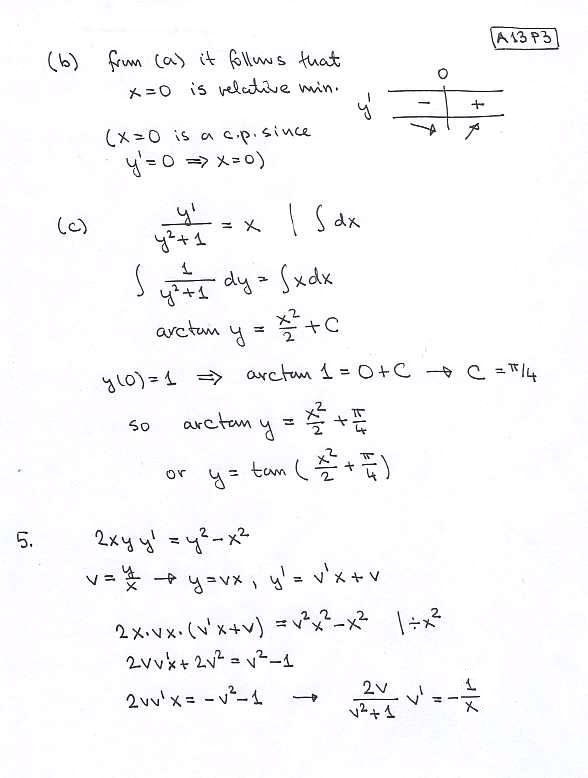 A13P3
(b) from (a) it follows that
x=0 is relative min.
(x=0 is a c.p. since
y'=0 ⇒ x=0)
0
y' - +
↘ ↗
(c) y'/(y²+1) = x | ∫ dx
∫ 1/(y²+1) dy = ∫ x dx
arctan y = x²/2 + C
y(0)=1 ⇒ arctan 1 = 0+C → C = π/4
so arctan y = x²/2 + π/4
or y = tan ( x²/2 + π/4 )
5. 2xy y' = y² - x²
v = y/x → y=vx, y' = v'x + v
2x·vx·(v'x+v) = v²x² - x² | ÷x²
2vv'x + 2v² = v² - 1
2vv'x = -v² - 1 → 2v/(v²+1) v' = - 1/x